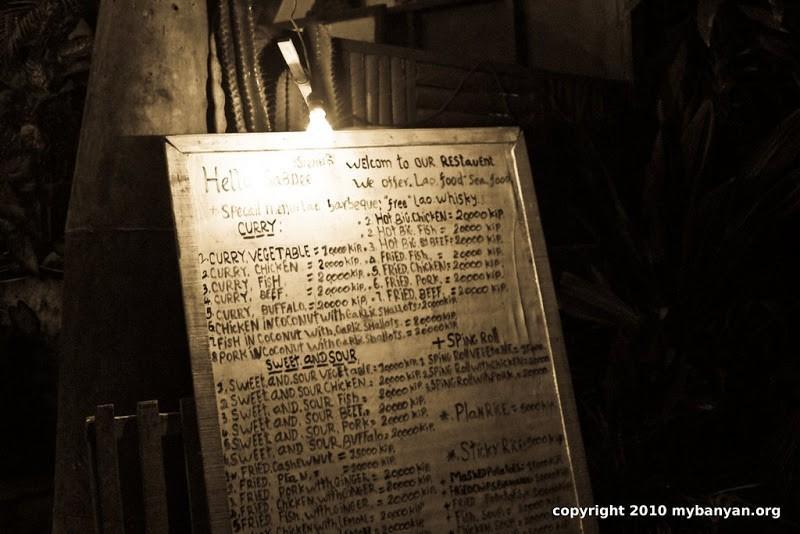 Hello SaBDee
Welcom to OUR RESTaurENT
We offer. Lao. food Sea. food
+ SPecail menu Lao barbeque; "free" Lao. whisky.
CURRY:
1. CURRY. VEGETABLE =
2. CURRY. CHICKEN = 20000 KIP.
3. CURRY. FISH = 20000 KIP.
4. CURRY. BEEF. = 20000 KIP.
5 CURRY. BUFFALO. = 20000 KIP.
6 CHICKEN IN COCONUT WITH GaRLiC SHaLLOTS. = 20000 KIP.
7 FISH IN COCONUT WITH. GaRLic SHaLLots. = 20000 KIP.
8 PORK IN COCONUT WITH. GaRLic SHaLLots. = 20000 KIP.
HOT BIG. CHICKEN = 20000 KIP.
2. HOT BIG. FISH. = 20000 KIP.
3. HOT BIG = 20000 KIP.
4. FRIED. FISH. = 20000 KIP.
5. FRIED. CHICKEN = 20000 KIP.
6. FRIED. PORK. = 20000 KIP.
7. FRIED. BEEF. = 20000 KIP.
SWEET AND SOUR
1. SWEET AND SOUR VEGETABLE =
2 SWEET. AND SOUR CHICKEN = 20000 KIP.
SWEET. AND. SOUR FISH = 20000 KIP.
SWEET. AND. SOUR BEEF. = 20000 KIP.
SWEET. AND. SOUR. PORK = 20000 KIP.
SWEET. AND. SOUR. BUFFaLo = 20000 KIP.
FRIED. CasHEWNUT = 25000 KIP.
FRIED. = 20000 KIP.
FRIED. PORK WITH GINGER = 20000 KIP.
FRIED. CHICKEN WITH GINGER. = 20000 KIP.
FRIED. FISH WITH GINGER. = 20000 KIP.
CHICKEN WITH LEMON =
+ SPING Roll
1 SPING Roll VEGETABLE =
2 SPING Roll WITH CHICKEN = 20000
3 SPING Roll WITH PORK = 20000
*. PLan RICE = 5000 KIP.
*. STicKy RICE = 5000 KIP.
+ MasHED PoTaToEs =
copyright 2010 mybanyan.org